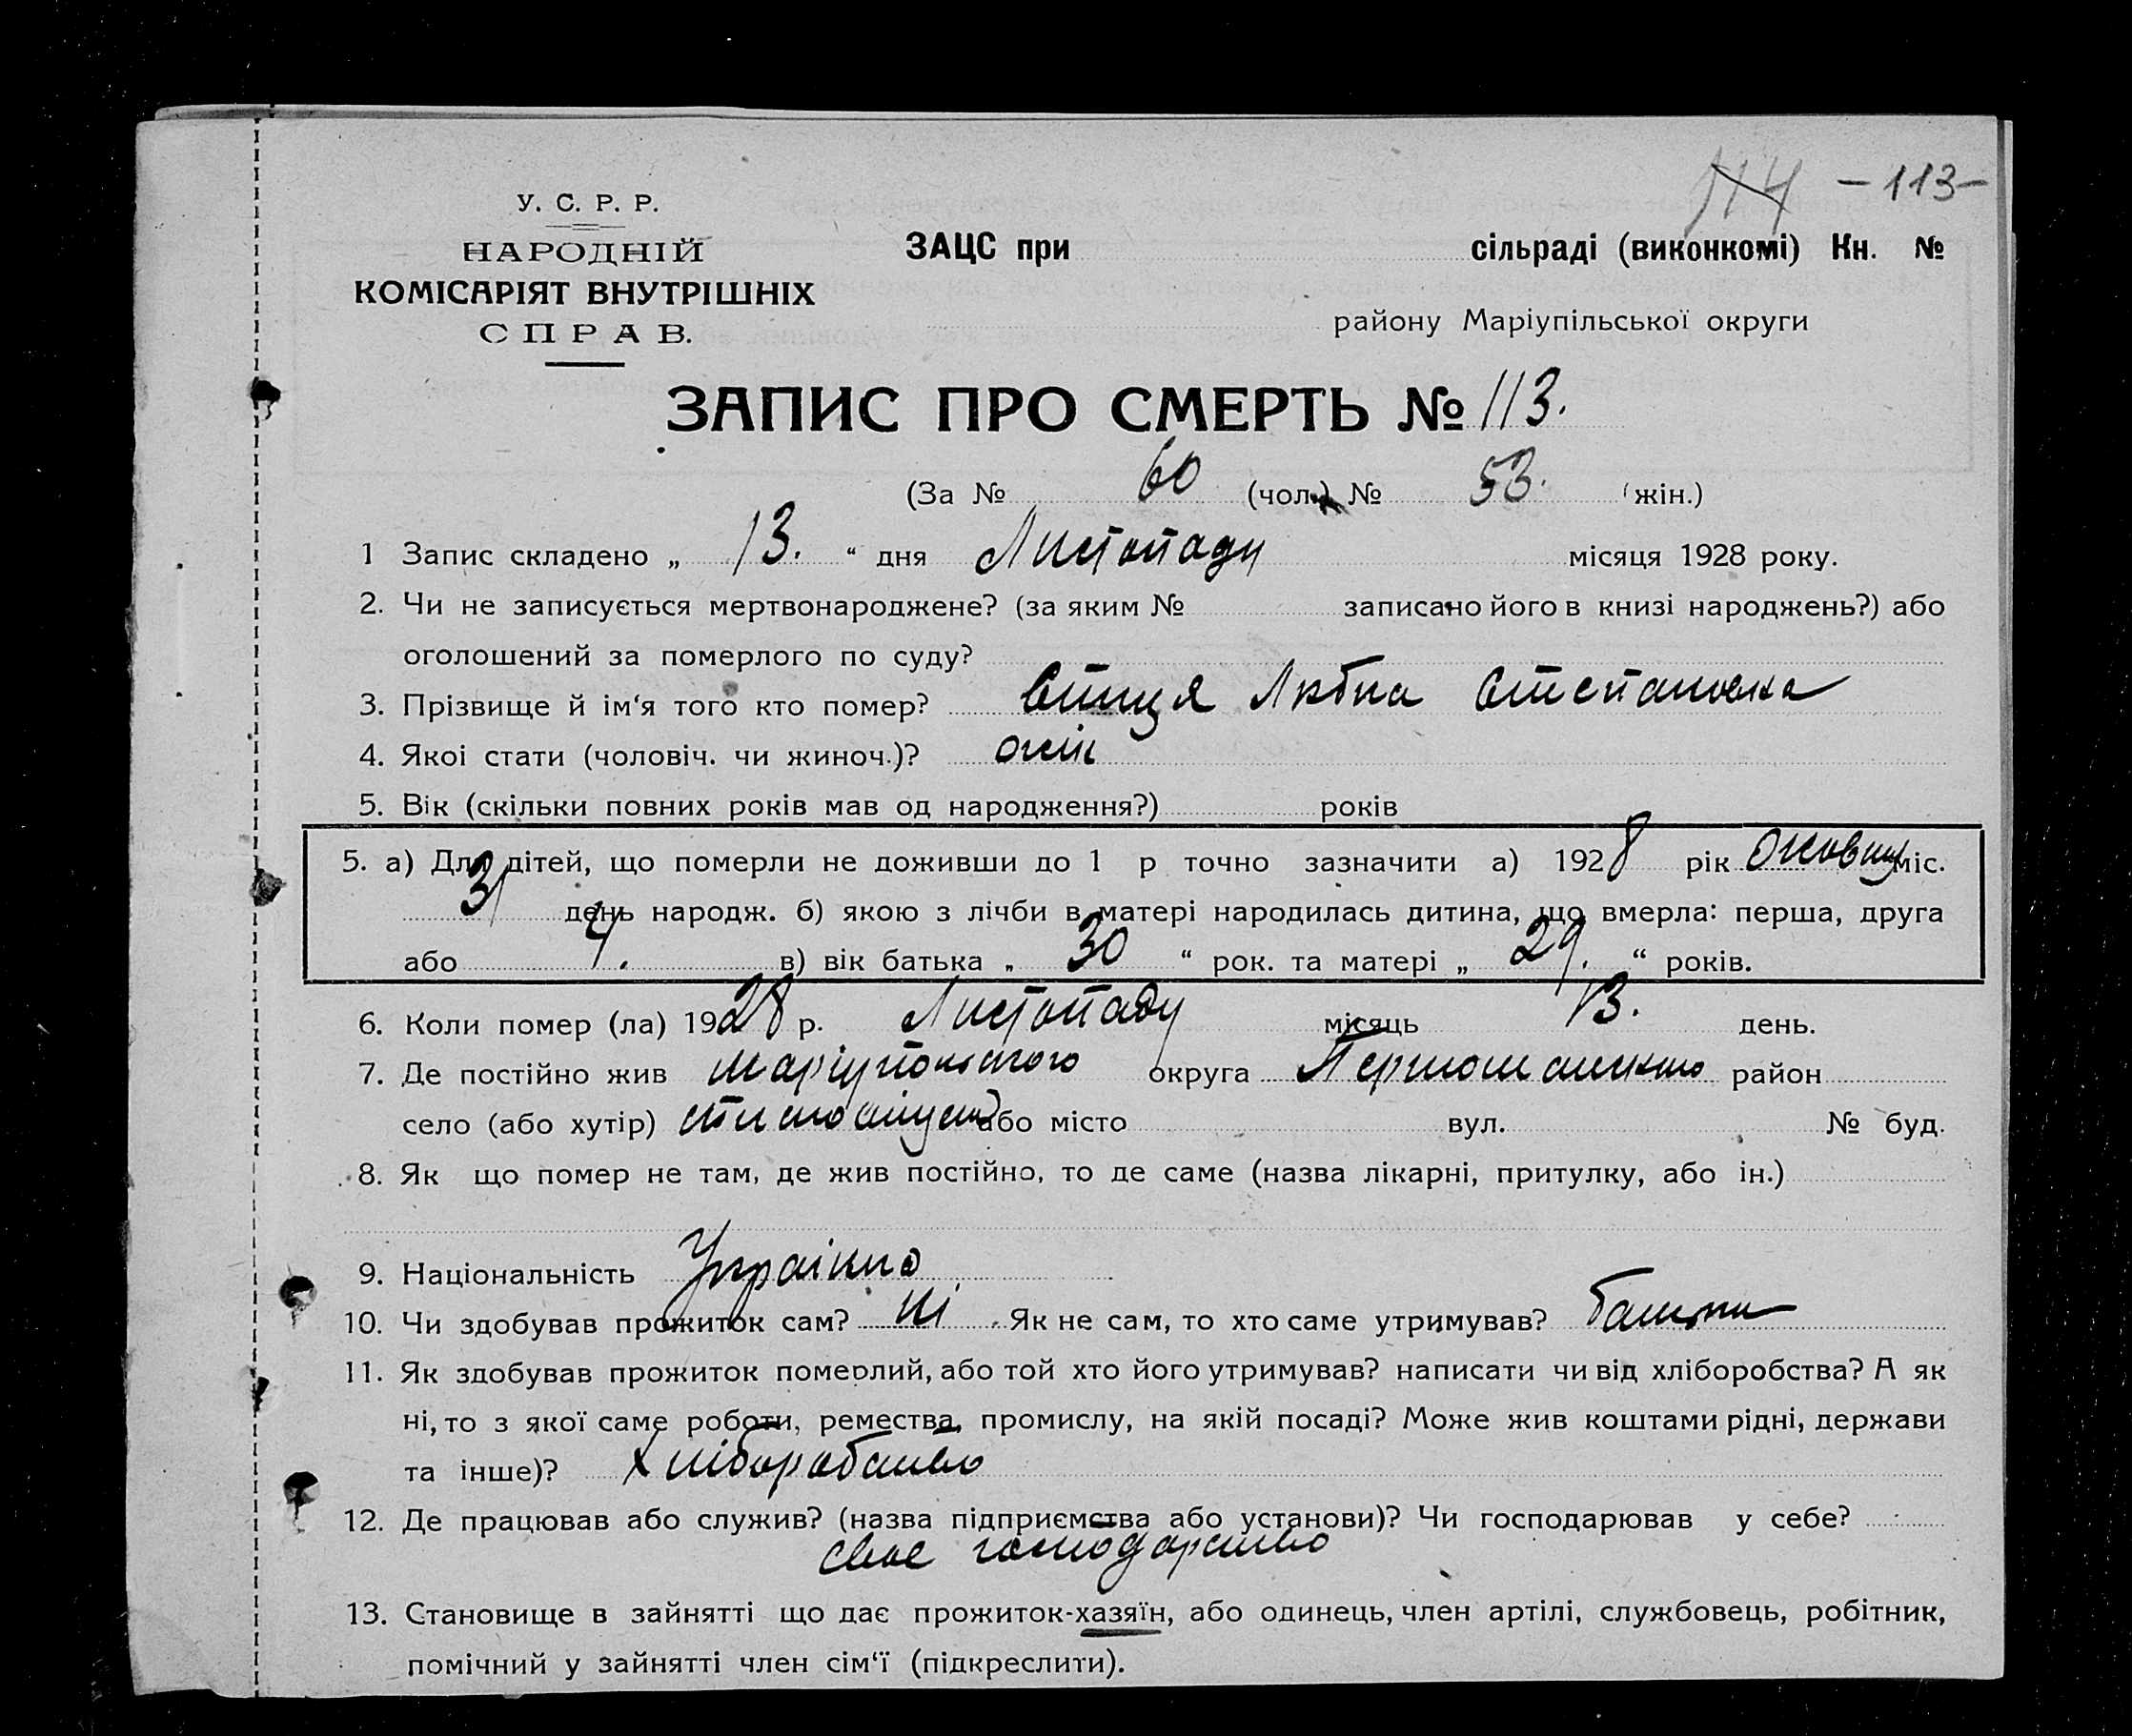 114 – 113 –
У. С. Р. Р.
НАРОДНІЙ
КОМІСАРІЯТ ВНУТРІШНІХ
СПРАВ.
ЗАЦС при сільраді (виконкомі) Кн. №
району Маріупільської округи
ЗАПИС ПРО СМЕРТЬ № 113.
(За № 60 (чол.) № 53. (жін.)
1 Запис складено „ 13. “ дня Листопаду місяця 1928 року.
2. Чи не записується мертвонароджене? (за яким № записано його в книзі народжень?) або
оголошений за померлого по суду?
3. Прізвище й ім‘я того кто помер? Степановна
4. Якоі стати (чоловіч. чи жиноч.)? жін
5. Вік (скільки повних років мав од народження?) років
5. а) Для дітей, що померли не доживши до 1 р точно зазначити а) 1928 рік Жовтня міс.
31 день народж. б) якою з лічби в матері народилась дитина, що вмерла: перша, друга
або 4. в) вік батька „ 30 “ рок. та матері „ 29. “ років.
6. Коли помер (ла) 1928 р. Листопаду місяць 13. день.
7. Де постійно жив округа район
село (або хутір) або місто вул. № буд.
8. Як що помер не там, де жив постійно, то де саме (назва лікарні, притулку, або ін.)
9. Національність Украінка
10. Чи здобував прожиток сам? ні . Як не сам, то хто саме утримував? батьки
11. Як здобував прожиток померлий, або той хто його утримував? написати чи від хліборобства? А як
ні, то з якої саме роботи, ремества, промислу, на якій посаді? Може жив коштами рідні, держави
та інше)? Хліборобство
12. Де працював або служив? (назва підприємства або установи)? Чи господарював у себе?
своє господарство
13. Становище в зайнятті що дає прожиток-хазяїн, або одинець, член артілі, службовець, робітник,
помічний у зайнятті член сім‘ї (підкреслити).